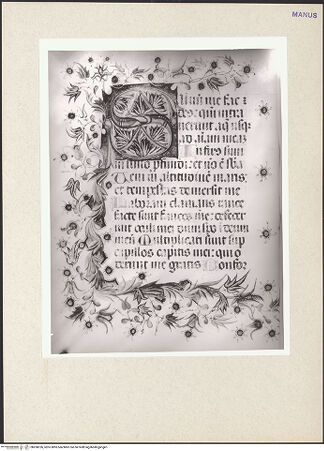 MANUS
Salvū me fac
deus: qui intra
uerunt aq̄ usq̄
ad aīam meā
Infixs sum
in limo p̄fundi: et nō ē sb̄a
Ueni in altitudinē maris:
et tempestas demersit me
Laboraui clamans rauce
facte sunt fauces mee: defecer
unt oculi mei dum spo ī deum
meū Multiplicati sunt sup
capillos capitis mei: qui o
derunt me gratis Confor